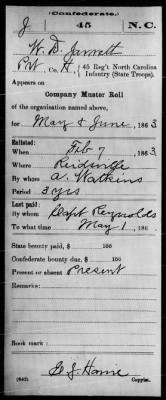 (Confederate.)
J 45 N.C.
W. D. Jarrett
Pvt, Co. H, 45 Reg't North Carolina
Infantry (State Troops).
Appears on
Company Muster Roll
of the organization named above,
for May & June, 1863
Enlisted:
When Feb 7, 1863
Where Reidsville
By whom A. Watkins
Period 3 yrs
Last paid:
By whom Capt Reynolds
To what time May 1, 186
State bounty paid, $ 100
Confederate bounty due, $ 100
Present or absent Present
Remarks:
Book mark:
(642) Copyist.